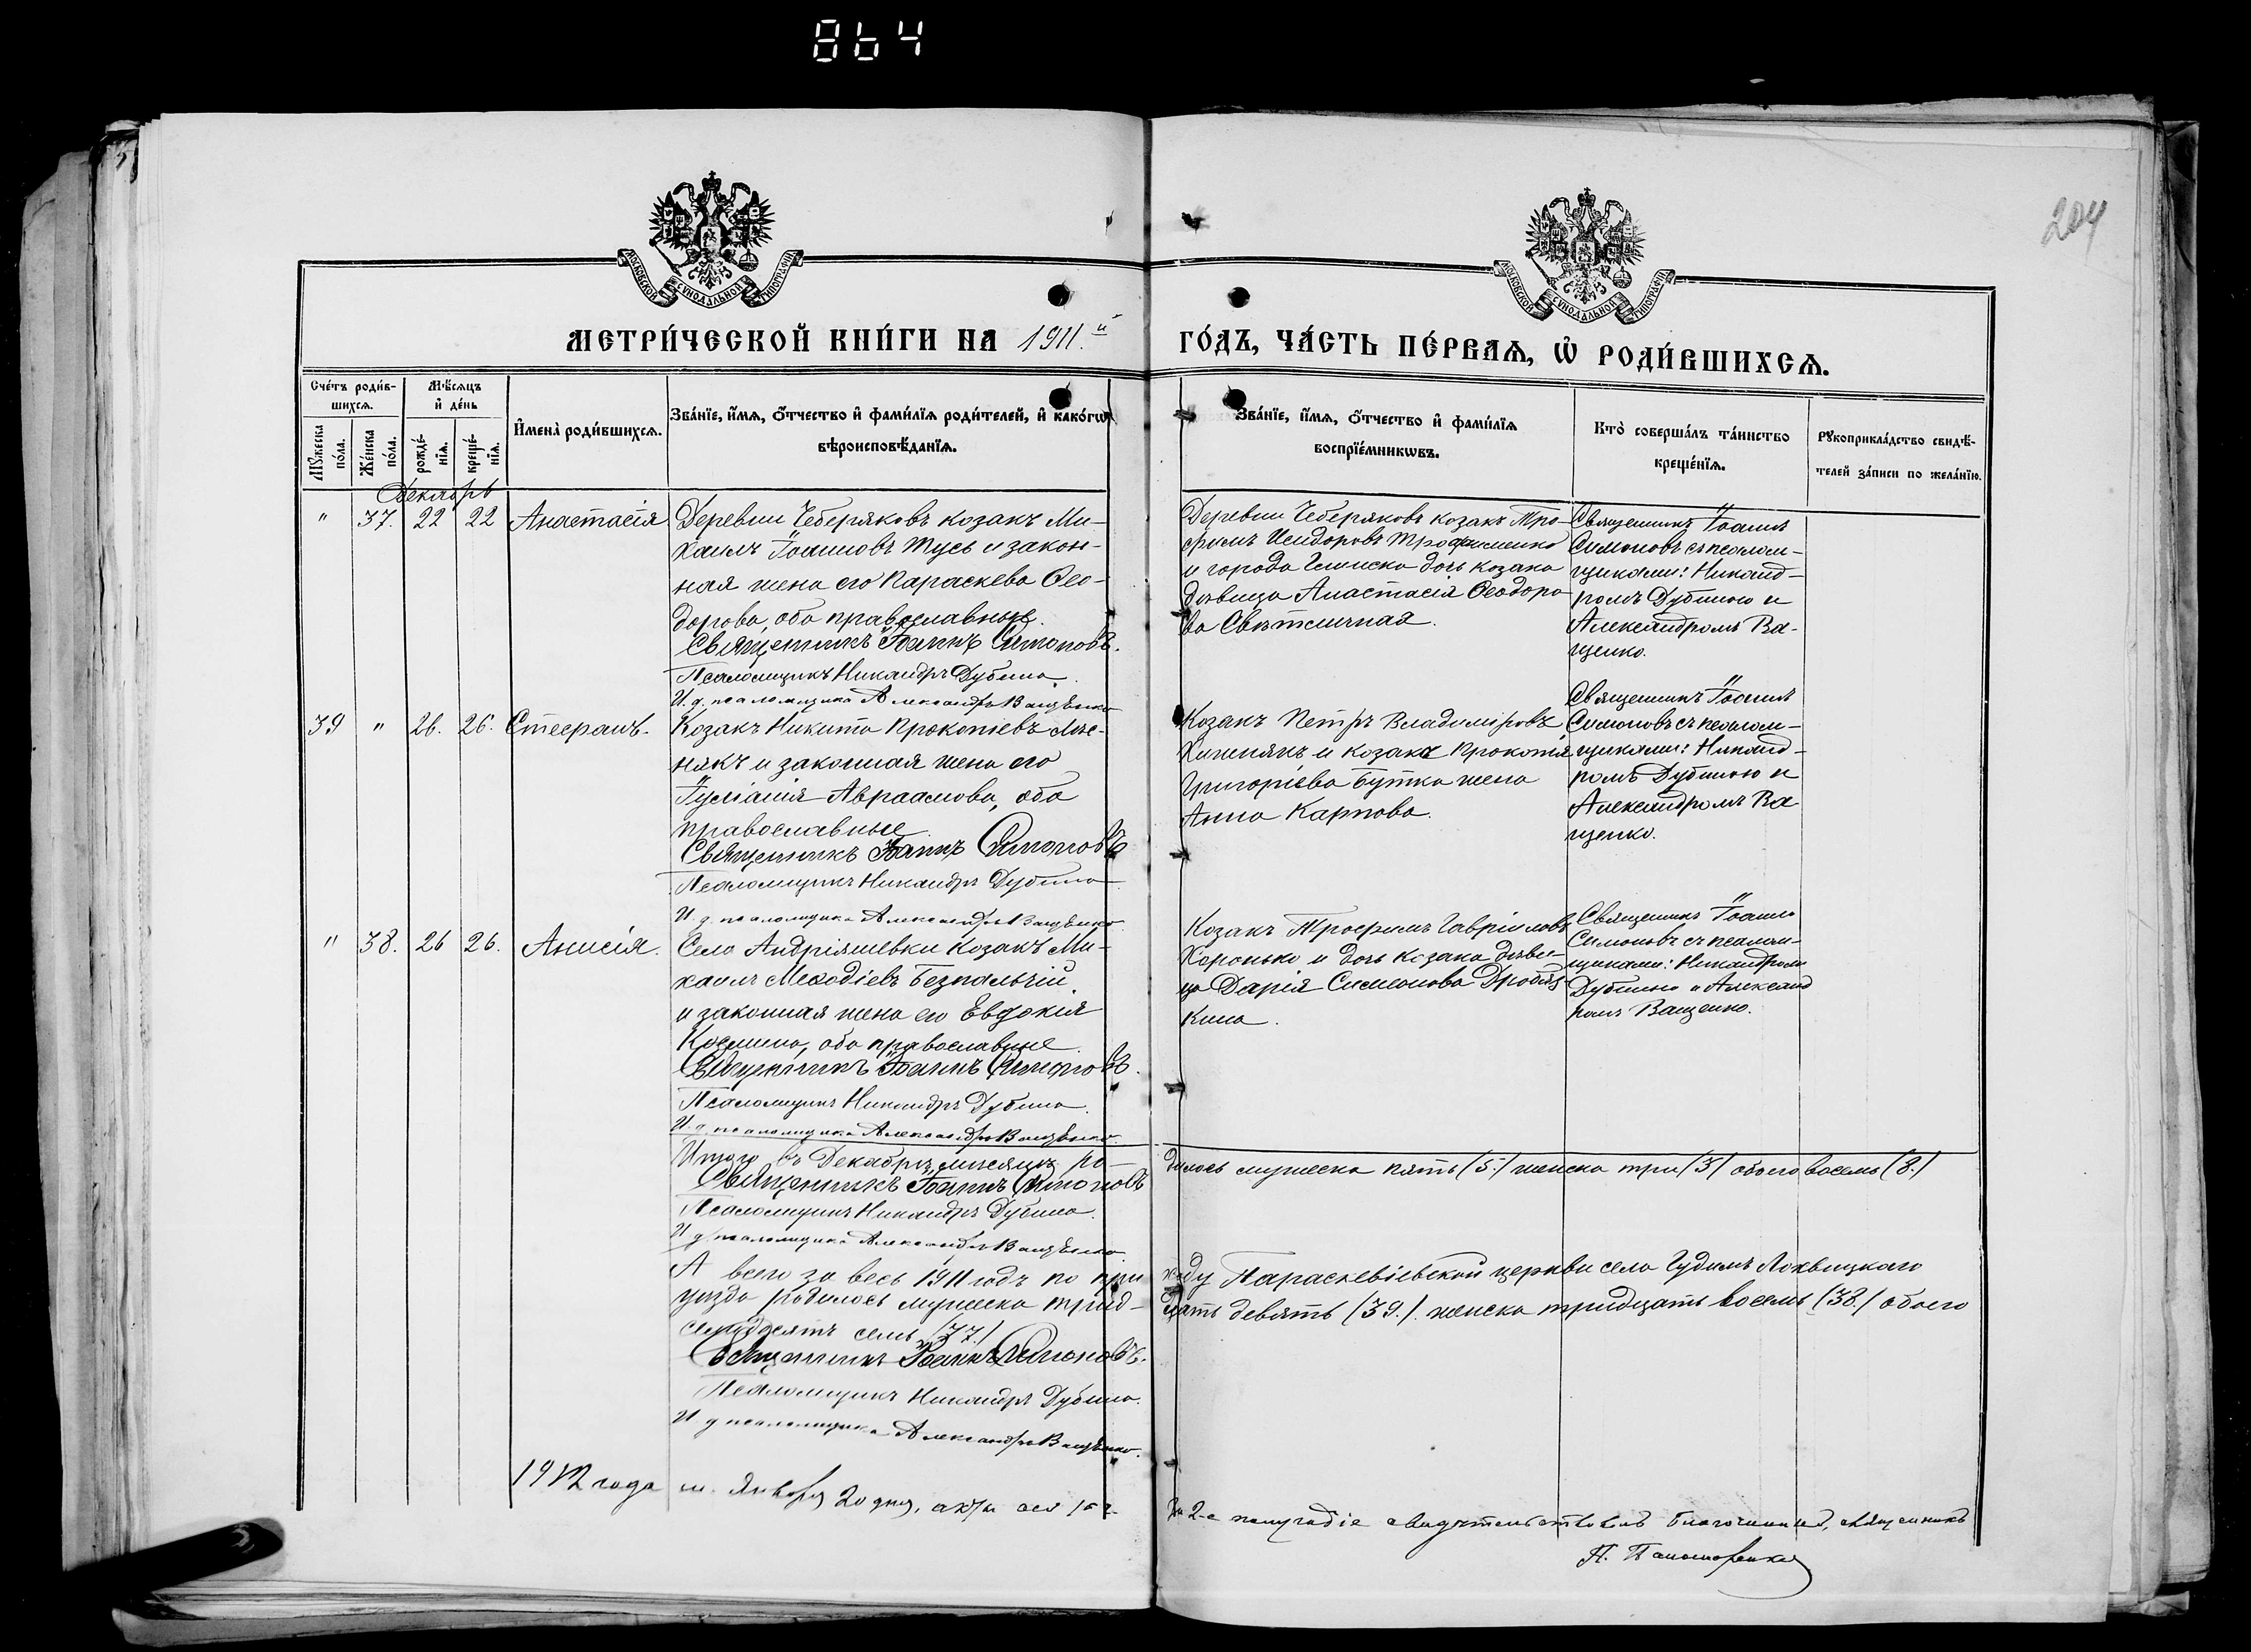 864
204
МОСКОВСКОЙ СѴНОДАЛЬНОЙ ТИПОГРАФІИ
МОСКОВСКОЙ СѴНОДАЛЬНОЙ ТИПОГРАФІИ
МЕТРИ́ЧЕСКОЙ КНИ́ГИ НА 1911.й ГО́ДЪ, ЧА́СТЬ ПЕ́РВАѦ, Ѡ҆ РОДИ́ВШИХСѦ.
Сче́тъ роди́в-
шихсѧ.
Мꙋ́жеска по́ла.
Же́нска по́ла.
Мѣ́сѧцъ
и҆ де́нь
рожде́-
нїѧ.
креще́-
нїѧ.
И҆мена̀ роди́вшихсѧ.
Зва́нїе, и҆́мѧ, ѻ҆́тчество и҆ фами́лїѧ роди́телей, и҆ како́гѡ
вѣроисповѣ́данїѧ.
Зва́нїе, и҆́мѧ, ѻ҆́тчество и҆ фами́лїѧ
воспрїе́мникѡвъ.
Кто̀ соверша́лъ та́инство
креще́нїѧ.
Рꙋкоприкла́дство свидѣ́-
телей за́писи по жела́нїю.
Декабрь
" 37. 22 22 Анастасія
Деревни Чеберяковъ козакъ Ми-
хаилъ Іоанновъ Тусь и закон-
ная жена его Параскева Ѳео-
дорова, оба православные.
Священникъ Іоаннъ Симоновъ.
Псаломщикъ Никандръ Дубина.
И. д. псаломщика Александръ Ващенко
Деревни Чеберяковъ козакъ Тро-
фимъ Исидоровъ Трофименко
и города дочь козака
дѣвица Анастасія Ѳеодоро-
ва Свѣтличная.
Священникъ Іоаннъ
Симоновъ съ псалом-
щиками: Никанд-
ромъ Дубиною и
Александромъ Ва-
щенко.
39 " 26. 26. Стефанъ.
Козакъ Никита Прокопіевъ
и законная жена его
Іуліанія Авраамова, оба
православные.
Священникъ Іоаннъ Симоновъ
Псаломщикъ Никандръ Дубина
И. д. псаломщика Александръ Ващенко
Козакъ Петръ Владиміровъ
и козака Прокопія
Григоріева Бутка жена
Анна Карпова.
Священникъ Іоаннъ
Симоновъ съ псалом-
щиками: Никанд-
ромъ Дубиною и
Александромъ Ва
щенко.
" 38. 26 26. Анисія.
Села Андріяшевки козакъ Ми-
хаилъ Меѳодіевъ Безпальчій
и законная жена его Евдокія
Космина, оба православные.
Священникъ Іоаннъ Симоновъ.
Псаломщикъ Никандръ Дубина.
И. д. псаломщика Александръ Ващенко
Козакъ Трофимъ Гавріиловъ
Хоронько и дочь козака дѣви-
ца Дарія Симеонова Дробяз-
кина.
Священникъ Іоаннъ
Симоновъ съ псалом-
щиками: Никандромъ
Дубиною и Александ
ромъ Ващенко.
Итого въ Декабрѣ мѣсяцѣ ро-
дилось мужеска пять (5.) женска три (3) обоего восемь (8.)
Священникъ Іоаннъ Симоновъ
Псаломщикъ Никандръ Дубина.
И. д. псаломщика Александръ Ващенко
А всего за весь 1911 годъ по при
ходу Параскевіевской церкви села Гудимъ Лохвицкаго
уѣзда родилось мужеска трид-
цать девять (39.) женска тридцать восемь (38.) обоего
семьдесятъ семь (77.)
Священникъ Іоаннъ Симоновъ.
Псаломщикъ Никандръ Дубина.
И. д. псаломщика Александръ Ващенко.
1912 года м. Января 20 дня, акты сіи
за 2-е полугодіе свидѣтельствовалъ благочинный, священникъ